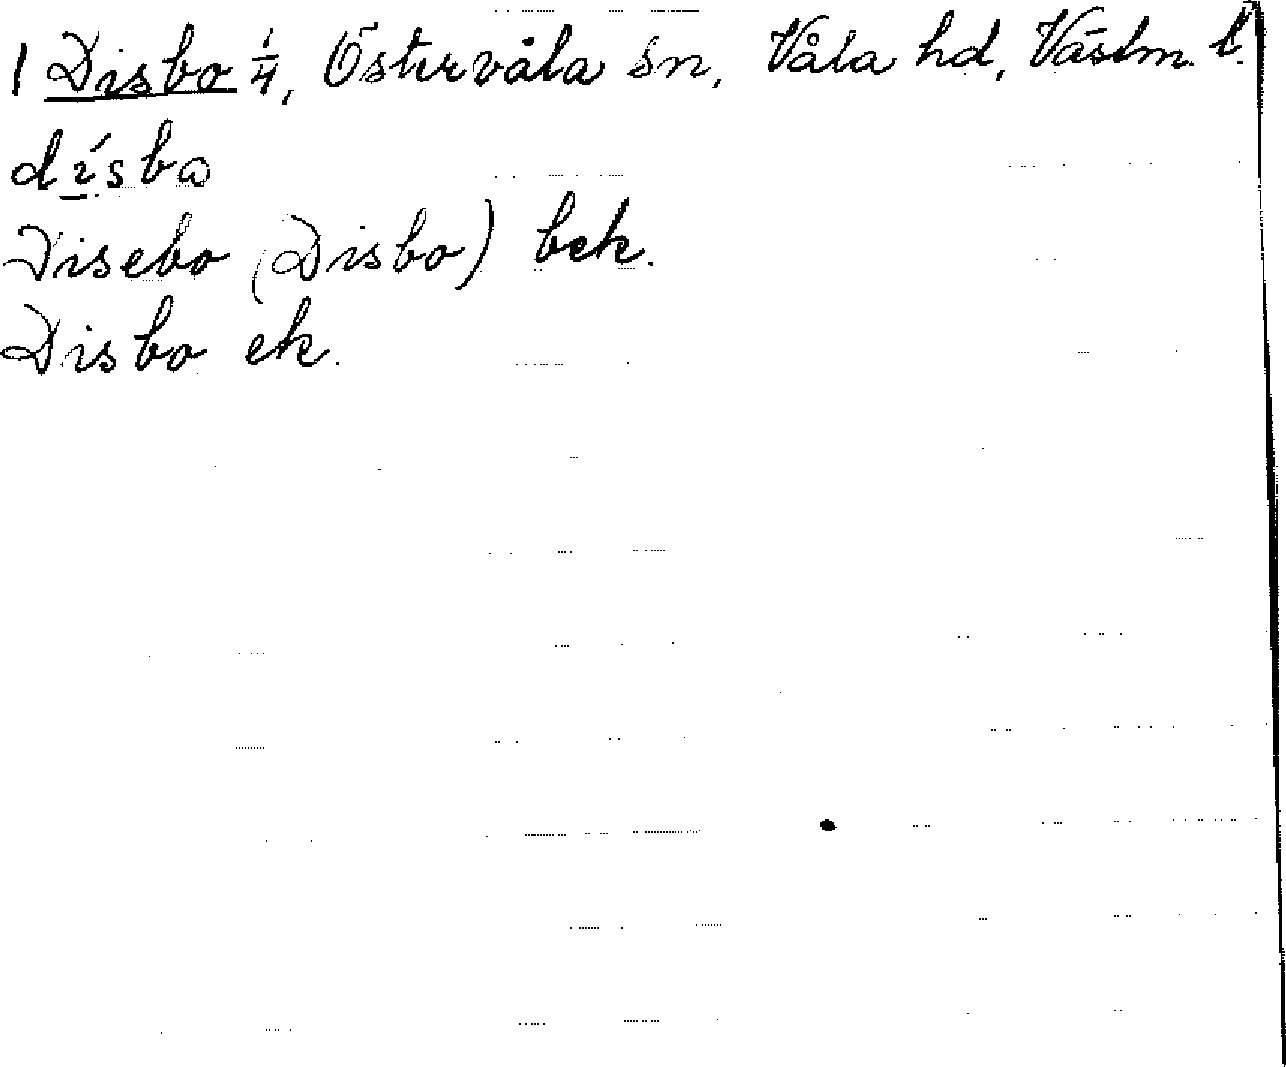 1 Disbo 1/4, Östervåla sn, Våla hd, Västm. l.
dísba
Disebo (Disbo) bek.
Disbo ek.